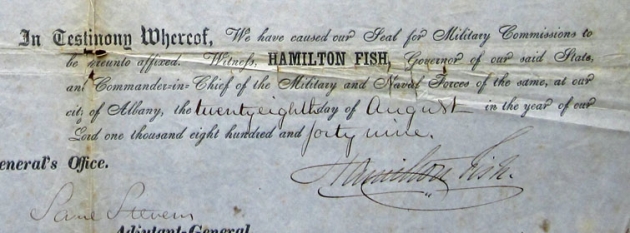 In Testimony Whereof, We have caused our Seal for Military Commissions to
be hereunto affixed. Witness, HAMILTON FISH, Governor of our said State,
and Commander-in-Chief of the Military and Naval Forces of the same, at our
city of Albany, the twenty eighth day of August in the year of our
Lord one thousand eight hundred and forty nine.
eneral's Office.
Hamilton Fish.
Stevens
Adjutant-General